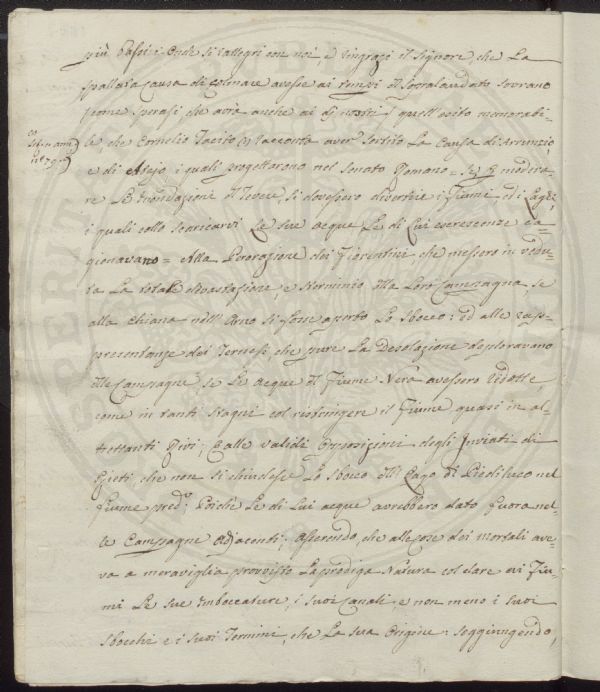 più Passi: Onde si rallegri con noi, e ringrazi il Signore, che La
spallata Causa di colmare avesse ai
come sperasi che avrà anche ai dì nostri quell'esito memorabi-
le che Cornelio Tacito (1) racconta aver sortito La Causa di Arrunzio,
e di Atejo, i quali progettarono nel Senato Romano = se a modera-
re Le Inondazione del Tevere si dovessero divertire i Fiumi, ed i Laghi,
i quali collo scaricarvi Le sue acque Le di Lui escrescenze ca-
gionavano = Alla Perorazione dei Fiorentini, che messero in vedu-
ta La totale devastazione, e sterminio della Loro Campagna, se
alla Chiana nell'Arno si fosse aperto Lo sbocco: ed alle rap-
presentanze dei Ternesi, che pure La desolazione deploravano
delle Campagne se Le acque del Fiume Nera avessero ridotte
come in tanti stagni col ristringere il Fiume quasi in al-
trettanti Rivi; e alle valide opposizioni degli Inviati di
Rieti, che non si chiudesse Lo sbocco del Lago di Piediluco nel
fiume pred.o; Poiche Le di Lui acque avrebbero dato fuora nel-
le Campagne adjacenti; asserendo, che alle cose dei mortali ave-
va a meraviglia provvisto La prodiga Natura col dare ai Fiu-
mi Le sue Imboccature, i suoi Canali, e non meno i suoi
sbocchi e i suoi Termini, che La sua origine: soggiungendo,